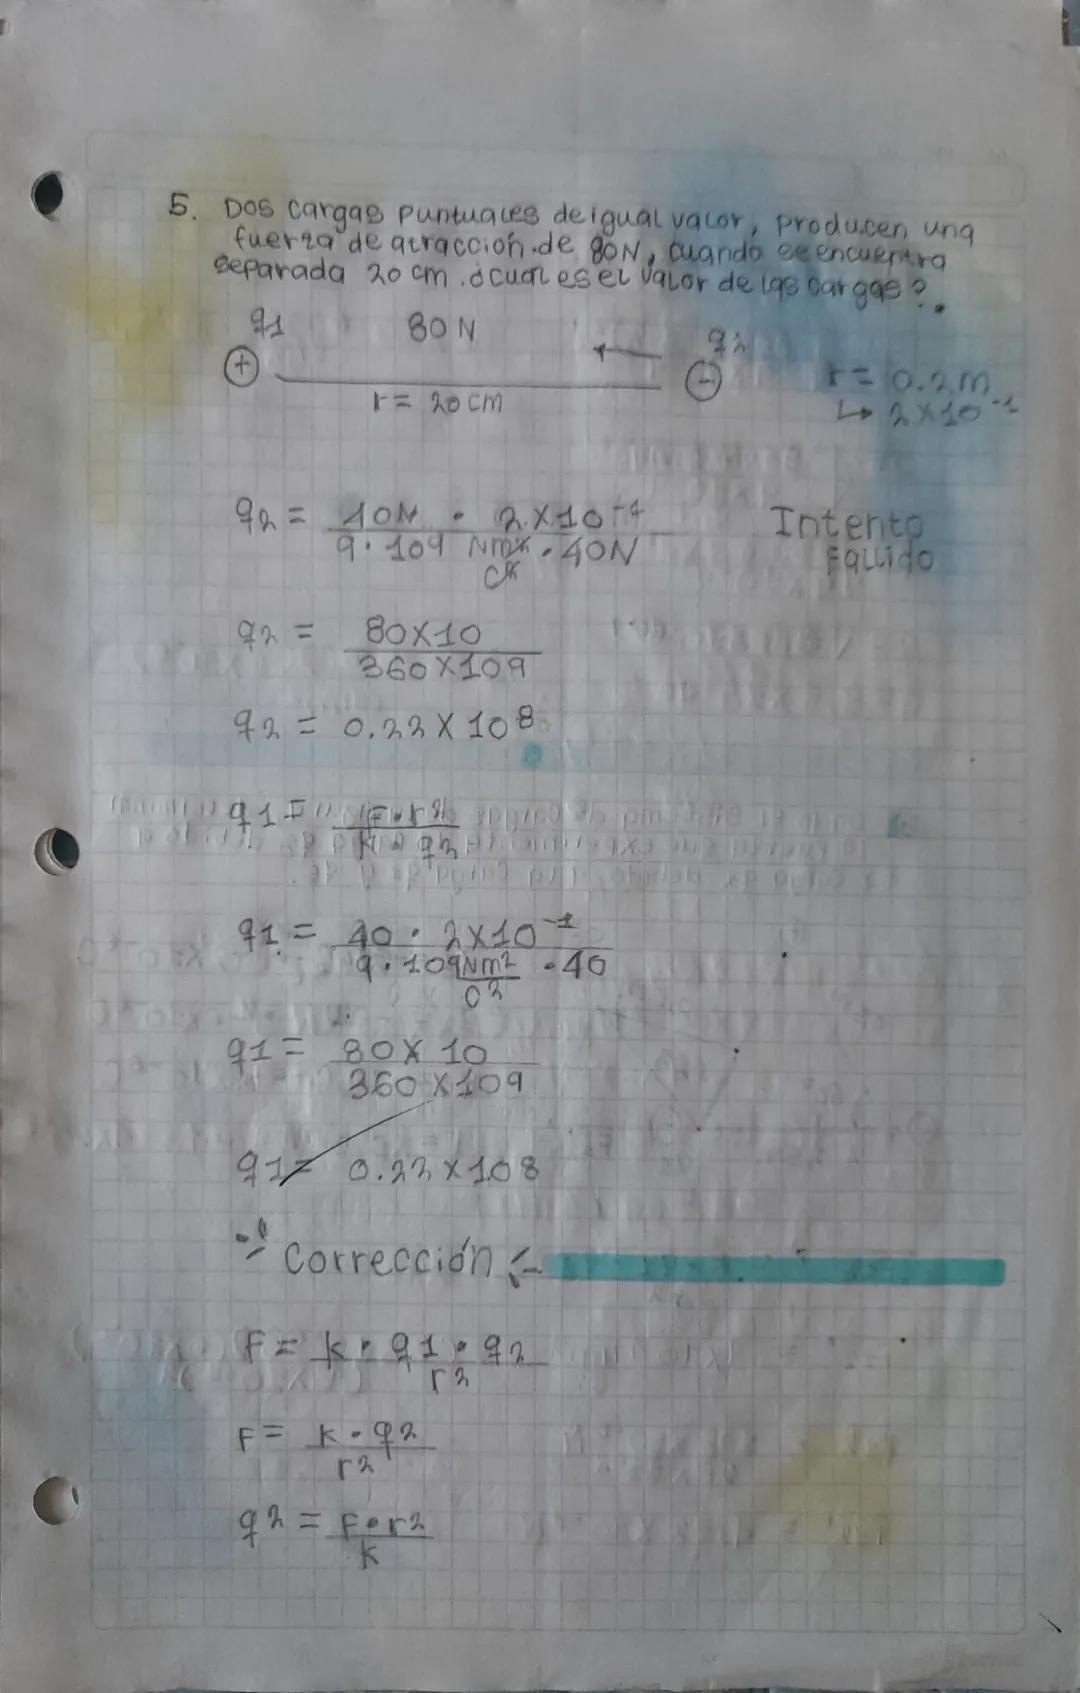 5. Dos cargas puntuales de igual valor, producen una
fuerza de atracción de 80N, cuando se encuentra
separada 20 cm. ¿cual es el valor de las cargas?.
q1 80 N q2
+ -
r= 20 cm
r= 0.2m
↳ 2x10⁻¹
q2 = 40N · 2x10⁻¹
9·109 Nm² · 40N
C²
Intento
Fallido
q2 = 80x10
360x109
q2 = 0.22 x 10⁸
q1 = F·r²
k · q2
q1 = 40 · 2x10⁻¹
9·109 Nm² · 40
C²
q1 = 80x 10
360 x109
q1= 0.22 x108
Corrección
F= k · q1 · q2
r2
F= k · q2
r2
q2 = F·r2
k